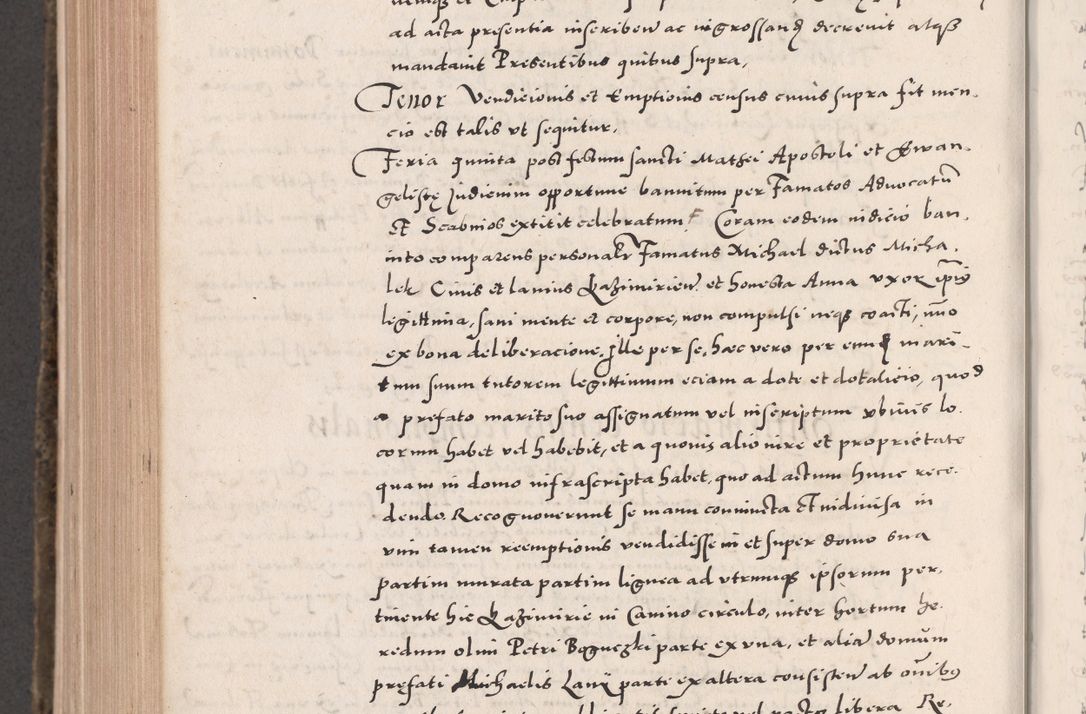 ad acta presentia inscribend ac ingrossand decrevit atqз
mandavit Presentibus quibus supra.
Tenor Vendicionis et Emptionis census cuius supra fit men-
cio est talis ut sequitur.
Feria quinta post festum sancti Mathei Apostoli et Ewan-
gelistę Judicium opportune bannitum per Famatos Advocatū
Et Scabinos extitit celebratum. Coram eodem iudicio ban-
nito comparens personalr Famatus Michael dictus Micha-
lek Civis et lanius Kazimirien et honesta Anna uxor ipiꝰ
legittima, sani mente et corpore, non compulsi neqз coacti, imo
ex bona deliberacione, Ille per se, hæc vero per eund mari-
tum suum tutorem legittimum eciam a dote et dotalicio, quod
a prefato marito suo assignatum vel inscriptum ubivis lo-
corum habet vel habebit, et a quovis alio iure et proprietate
quam in domo infrascripta habet, quo ad actum hunc rece-
dendo. Recognoverunt se manu coniuncta Et indivisa in
vim tamen reemptionis vendidisse in et super domo sua
partim murata partim lignea ad utrumqз ipsorum per-
tinente hic Kazimirie in Camino circulo, inter hortum he-
redum olim Petri parte ex una, et alia domum
prefati Michaelis Lanii parte ex altera consisten ab oībus
libera Re-